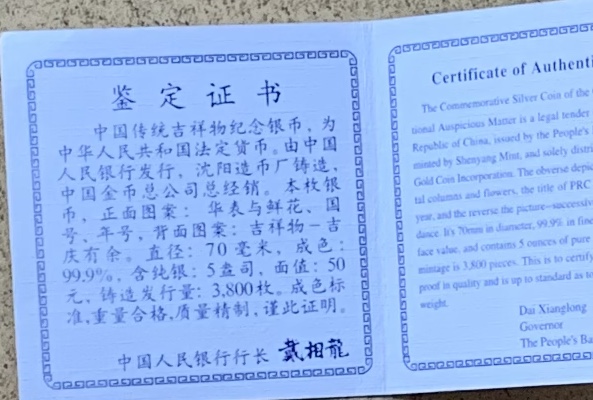 鉴定证书
中国传统吉祥物纪念银币，为
中华人民共和国法定货币。由中国
人民银行发行，沈阳造币厂铸造，
中国金币总公司总经销。本枚银
币，正面图案：华表与鲜花、国
号、年号，背面图案：吉祥物－吉
庆有余。直径：70毫米，成色：
99.9%，含纯银：5盎司，面值：50
元，铸造发行量：3,800枚。成色标
准，重量合格，质量精制，谨此证明。
中国人民银行行长 戴相龙
Certificate of Authenti
The Commemorative Silver Coin of the
tional Auspicious Matter is a legal tender
Republic of China, issued by the People's
minted by Shenyang Mint, and solely distri
Gold Coin Incorporation. The obverse depic
tal columns and flowers, the title of PRC
year, and the reverse the picture--successive
dance. It's 70mm in diameter, 99.9% in fine
face value, and contains 5 ounces of pure
mintage is 3,800 pieces. This is to certify
proof in quality and is up to standard as to
weight.
Dai Xianglong
Governor
The People's Ba